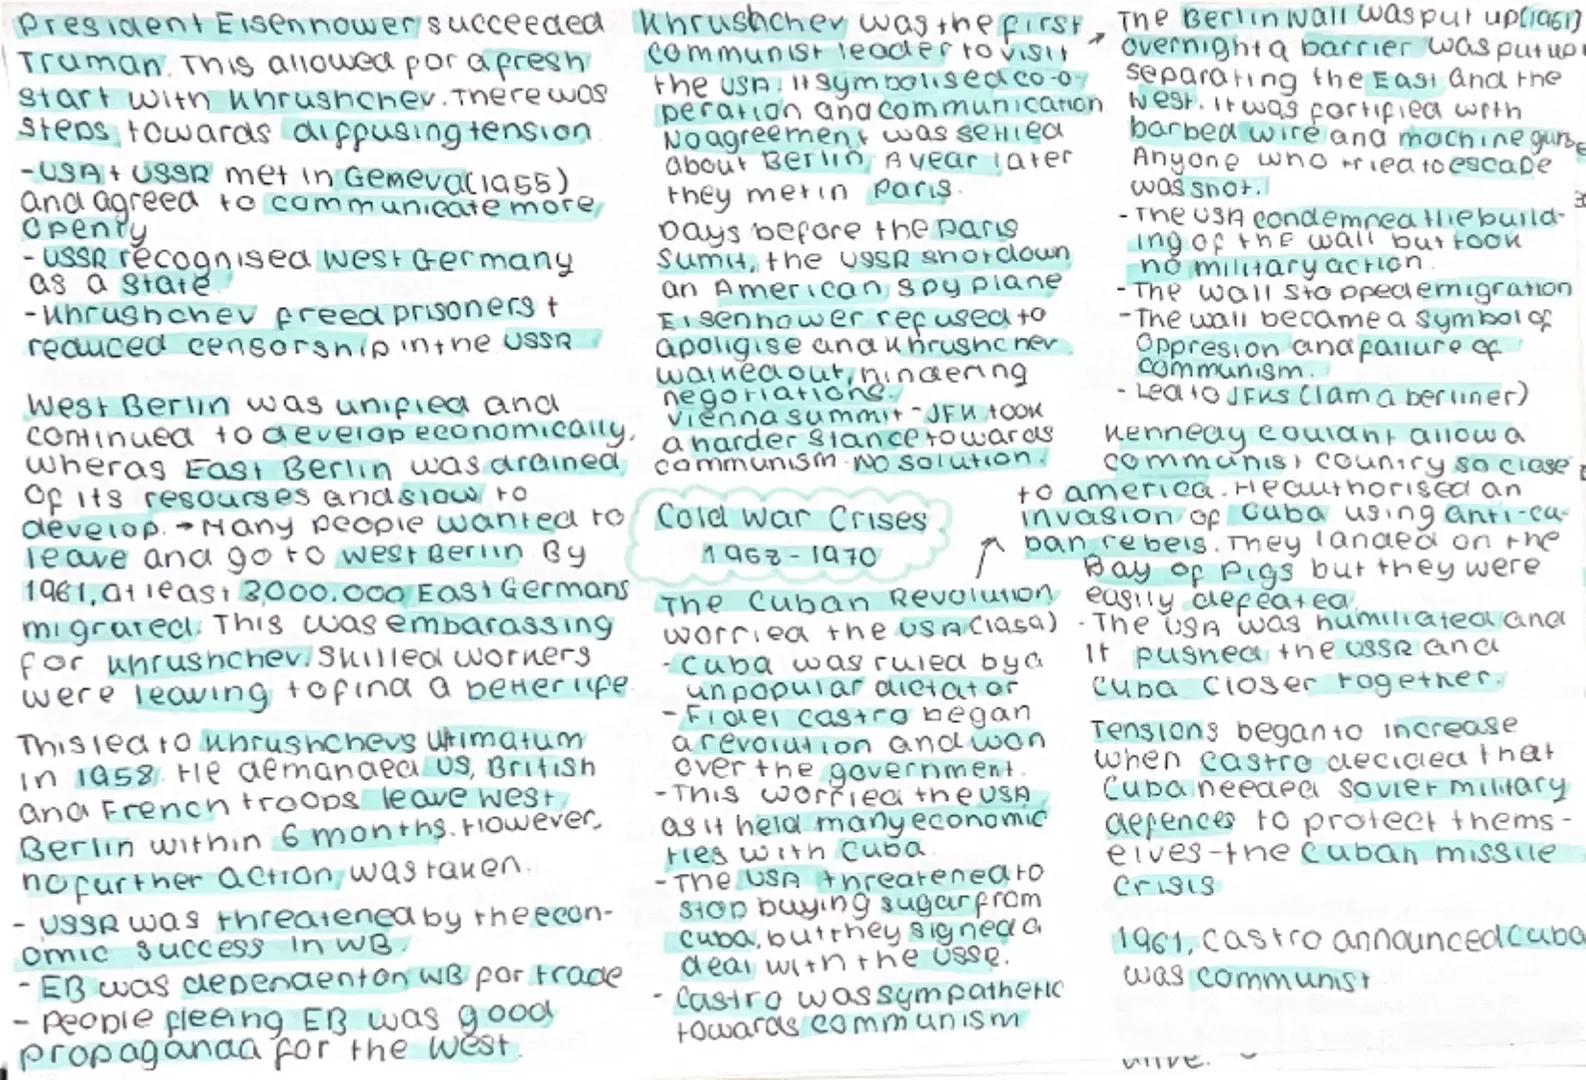 President Eisennower succeeded
Truman. This allowed for a fresh
start with Khrushchev. There was
steps towards diffusing tension
- USA + USSR met in Gemeva (1955)
and agreed to communicate more
openly
- USSR recognised West Germany
as a state
- Khrushchev freed prisoners +
reduced censorship in the USSR
West Berlin was unified and
continued to develop economically,
wheras East Berlin was drained
of its resourses and slow to
develop. → Many people wanted to
leave and go to West Berlin By
1961, at least 3000.000 East Germans
migrated. This was embarassing
for Khrushchev. Skilled workers
were leaving to find a better life
This led to Khrushchevs Ultimatum
in 1958. He demanded US, British
and French troops leave West
Berlin within 6 months. However,
no further action was taken.
- USSR was threatened by the econ-
omic success in WB.
- EB was dependent on WB for trade
- People fleeing EB was good
propaganda for the West.
Khrushchev was the first
communist leader to visit
the USA. It symbolised co-o-
peration and communication
No agreement was settled
about Berlin, A year later
they met in Paris.
Days before the Paris
Sumit, the USSR shot down
an American spy plane
Eisenhower refused to
apoligise and Khrushchev
walked out, hindering
negotiations.
Vienna summit - JFK took
a harder stance towards
communism. No solution.
Cold War Crises
1958 - 1970
The Cuban Revolution
worried the USA (1959)
- Cuba was ruled by a
unpopular dictator
- Fidel Castro began
a revolution and won
over the government.
- This worried the USA
as it held many economic
ties with Cuba.
- The USA threatened to
stop buying sugar from
Cuba, but they signed a
deal with the USSR.
- Castro was sympathetic
towards communism
The Berlin Wall was put up (1961)
overnight a barrier was put up
separating the East and the
West. It was fortified with
barbed wire and machine guns
Anyone who tried to escape
was shot.
- The USA condemned the build-
ing of the wall but took
no military action.
- The wall stopped emigration
- The wall became a symbol of
oppresion and failure of
communism.
- Lead to JFKs (I am a berliner)
Kennedy couldnt allow a
communist country so close
to america. He authorised an
invasion of Cuba using anti-cu-
ban rebels. They landed on the
Bay of Pigs but they were
easily defeated.
- The USA was humiliated and
It pushed the USSR and
Cuba closer together.
Tensions began to increase
when Castro decided that
Cuba needed soviet military
defences to protect thems-
elves - the Cuban missile
Crisis
1961, Castro announced Cuba
was communist